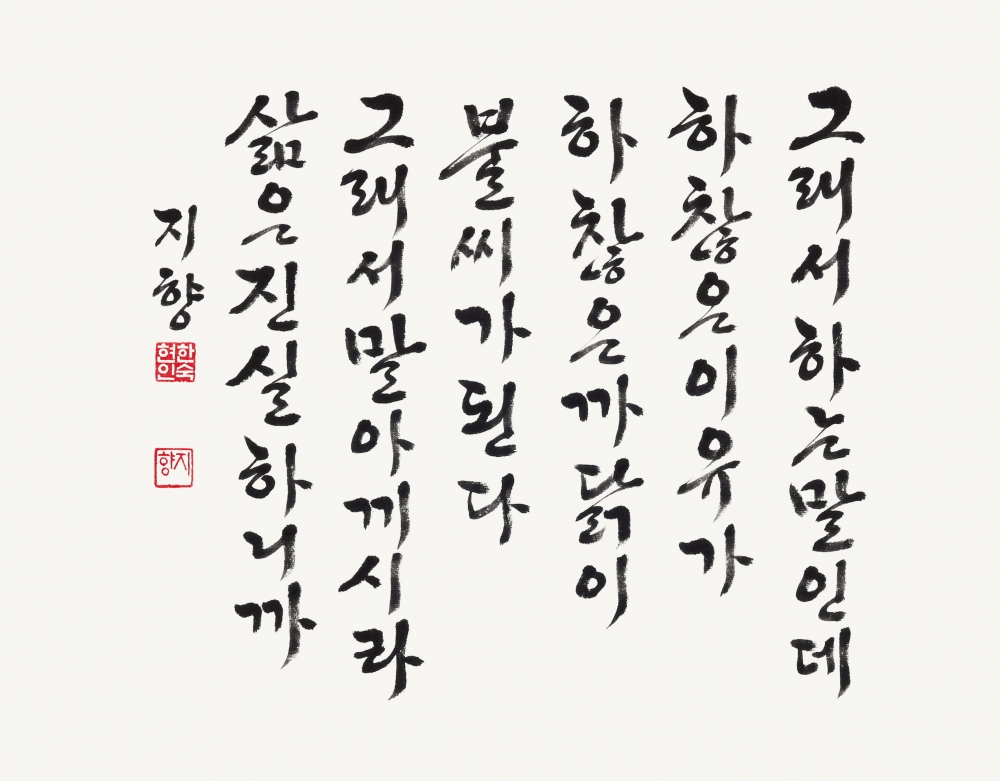 그래서 하는 말인데
하찮은 이유가
하찮은 까닭이
불씨가 된다
그래서 말 아끼시라
삶은 진실하니까
지향
한숙현인
지향